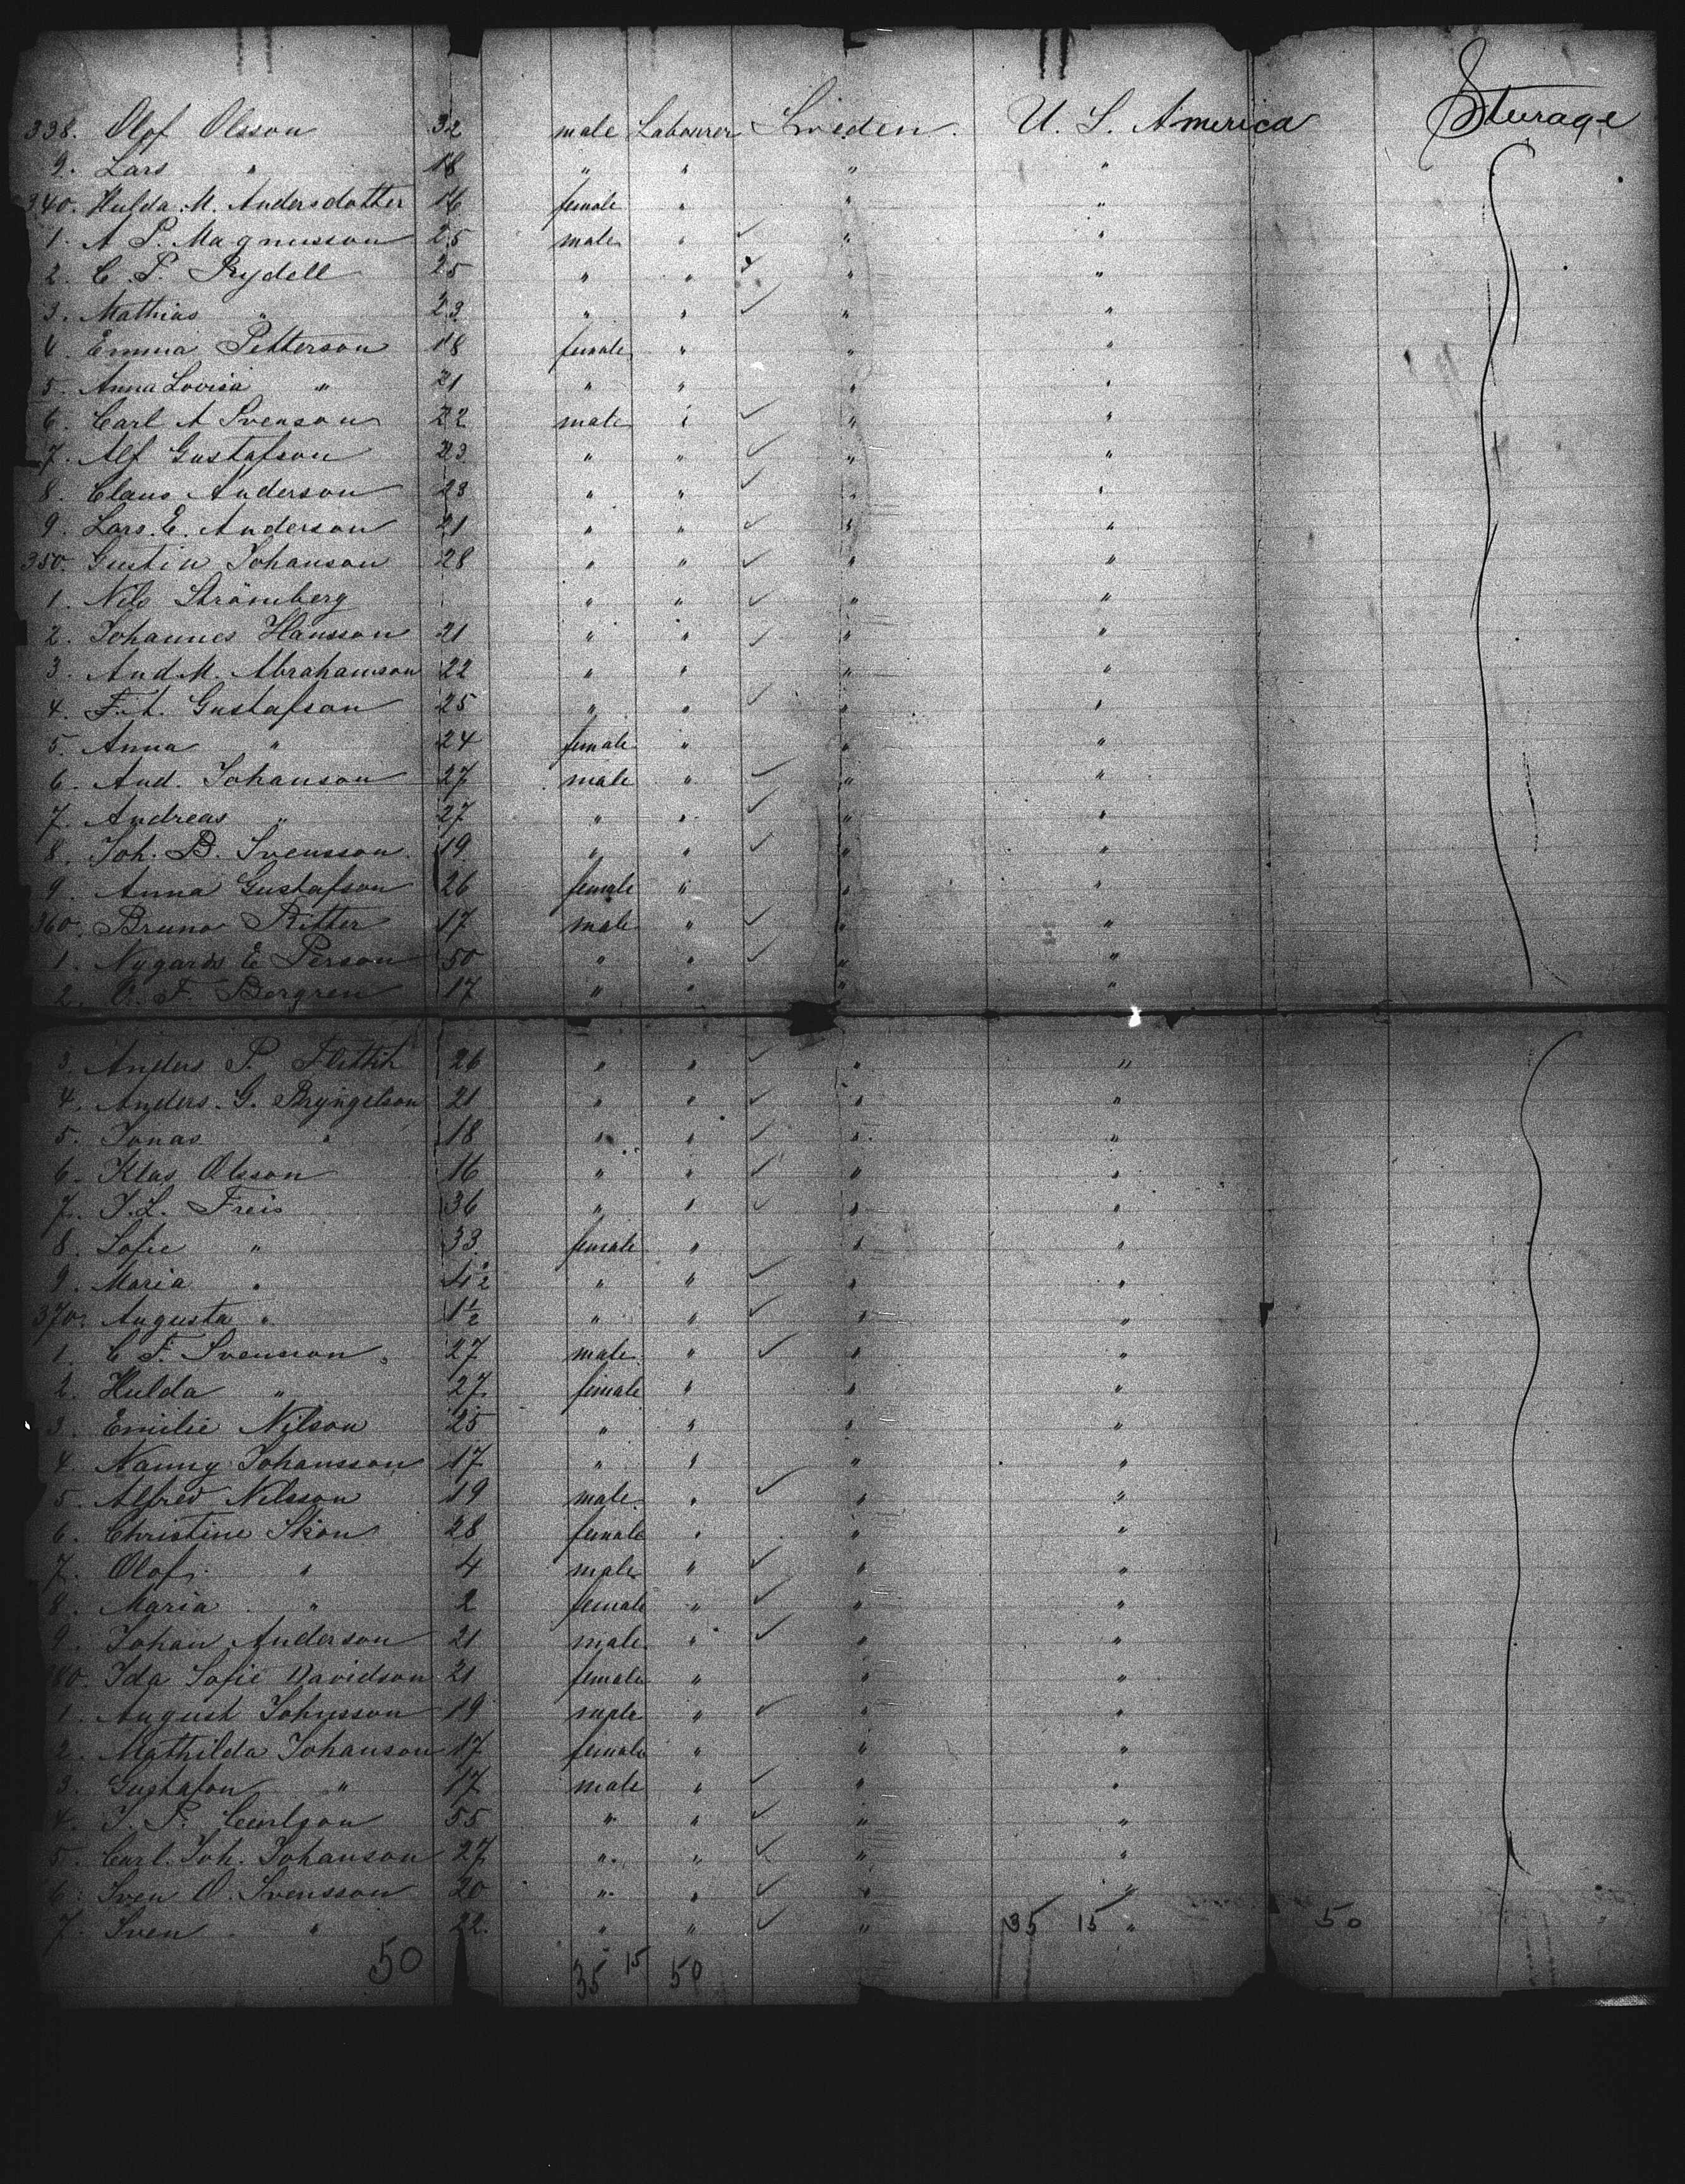 338. Olof Olsson 32 male Labourer Sweden. U. S. America Steurage
9. Lars " 18 " " " "
340. Hulda M. Andersdotter 16 female " " "
1. A P. Magnusson 25 male " ✓ " "
2. C. P. Rydell 25 " " ✓ " "
3. Mathias " 23 " " ✓ " "
4. Emma Petterson 18 female " " "
5. Anna Lovisa " 21 " " " "
6. Carl A Svenson 22 male " ✓ " "
7. Alf Gustafson 23 " " ✓ " "
8. Claus Anderson 23 " " ✓ " "
9. Lars E. Anderson 21 " " ✓ " "
350. Gustin Johanson 28 " " ✓ " "
1. Nils Strömberg " " ✓ " "
2. Johannes Hansson 21 " " ✓ " "
3. And. M. Abrahamson 22 " " " "
4. F. A. Gustafson 25 " " ✓ " "
5. Anna " 24 female " " "
6. And. Johanson 27 male " ✓ " "
7. Andreas " 27 " " ✓ " "
8. Joh. B. Svensson 19 " " ✓ " "
9. Anna Gustafson 26 female " " "
360. Bruno Ritter 17 male " ✓ " "
1. Nygards E Person 50 " " ✓ " "
2. F. Bergren 17 " " " "
3. Anders P. 26 " " ✓ " "
4. Anders. G. Bryngelson 21 " " ✓ " "
5. Jonas " 18 " " ✓ " "
6. Klas Olsson 16 " " ✓ " "
7. J. L. Freis 36 " " ✓ " "
8. Sofie " 33 female " " "
9. Maria " 4½ " " ✓ " "
370. Augusta " 1½ " " ✓ " "
1. C F. Svensson 27 male " ✓ " "
2. Hulda " 27 female " " "
3. Emilie Nilson 25 " " " "
4. Nanny Johansson 17 " " " "
5. Alfred Nilsson 19 male " ✓ " "
6. Christine Skon 28 female " " "
7. Olof " 4 male " ✓ " "
8. Maria " 2 female " ✓ " "
9. Johan Anderson 21 male " ✓ " "
380. Ida Sofie Davidson 21 female " " "
1. August Johnsson 19 male " ✓ " "
2. Mathilda Johanson 17 female " " "
3. Gustafon " 17 male " ✓ " "
4. J. P. Carlson 55 " " ✓ " "
5. Carl. Joh. Johanson 27 " " ✓ " "
6. Sven O. Svensson 20 " " ✓ " "
7. Sven " 22 " " ✓ " 35 15 " 50
50 35 15 50